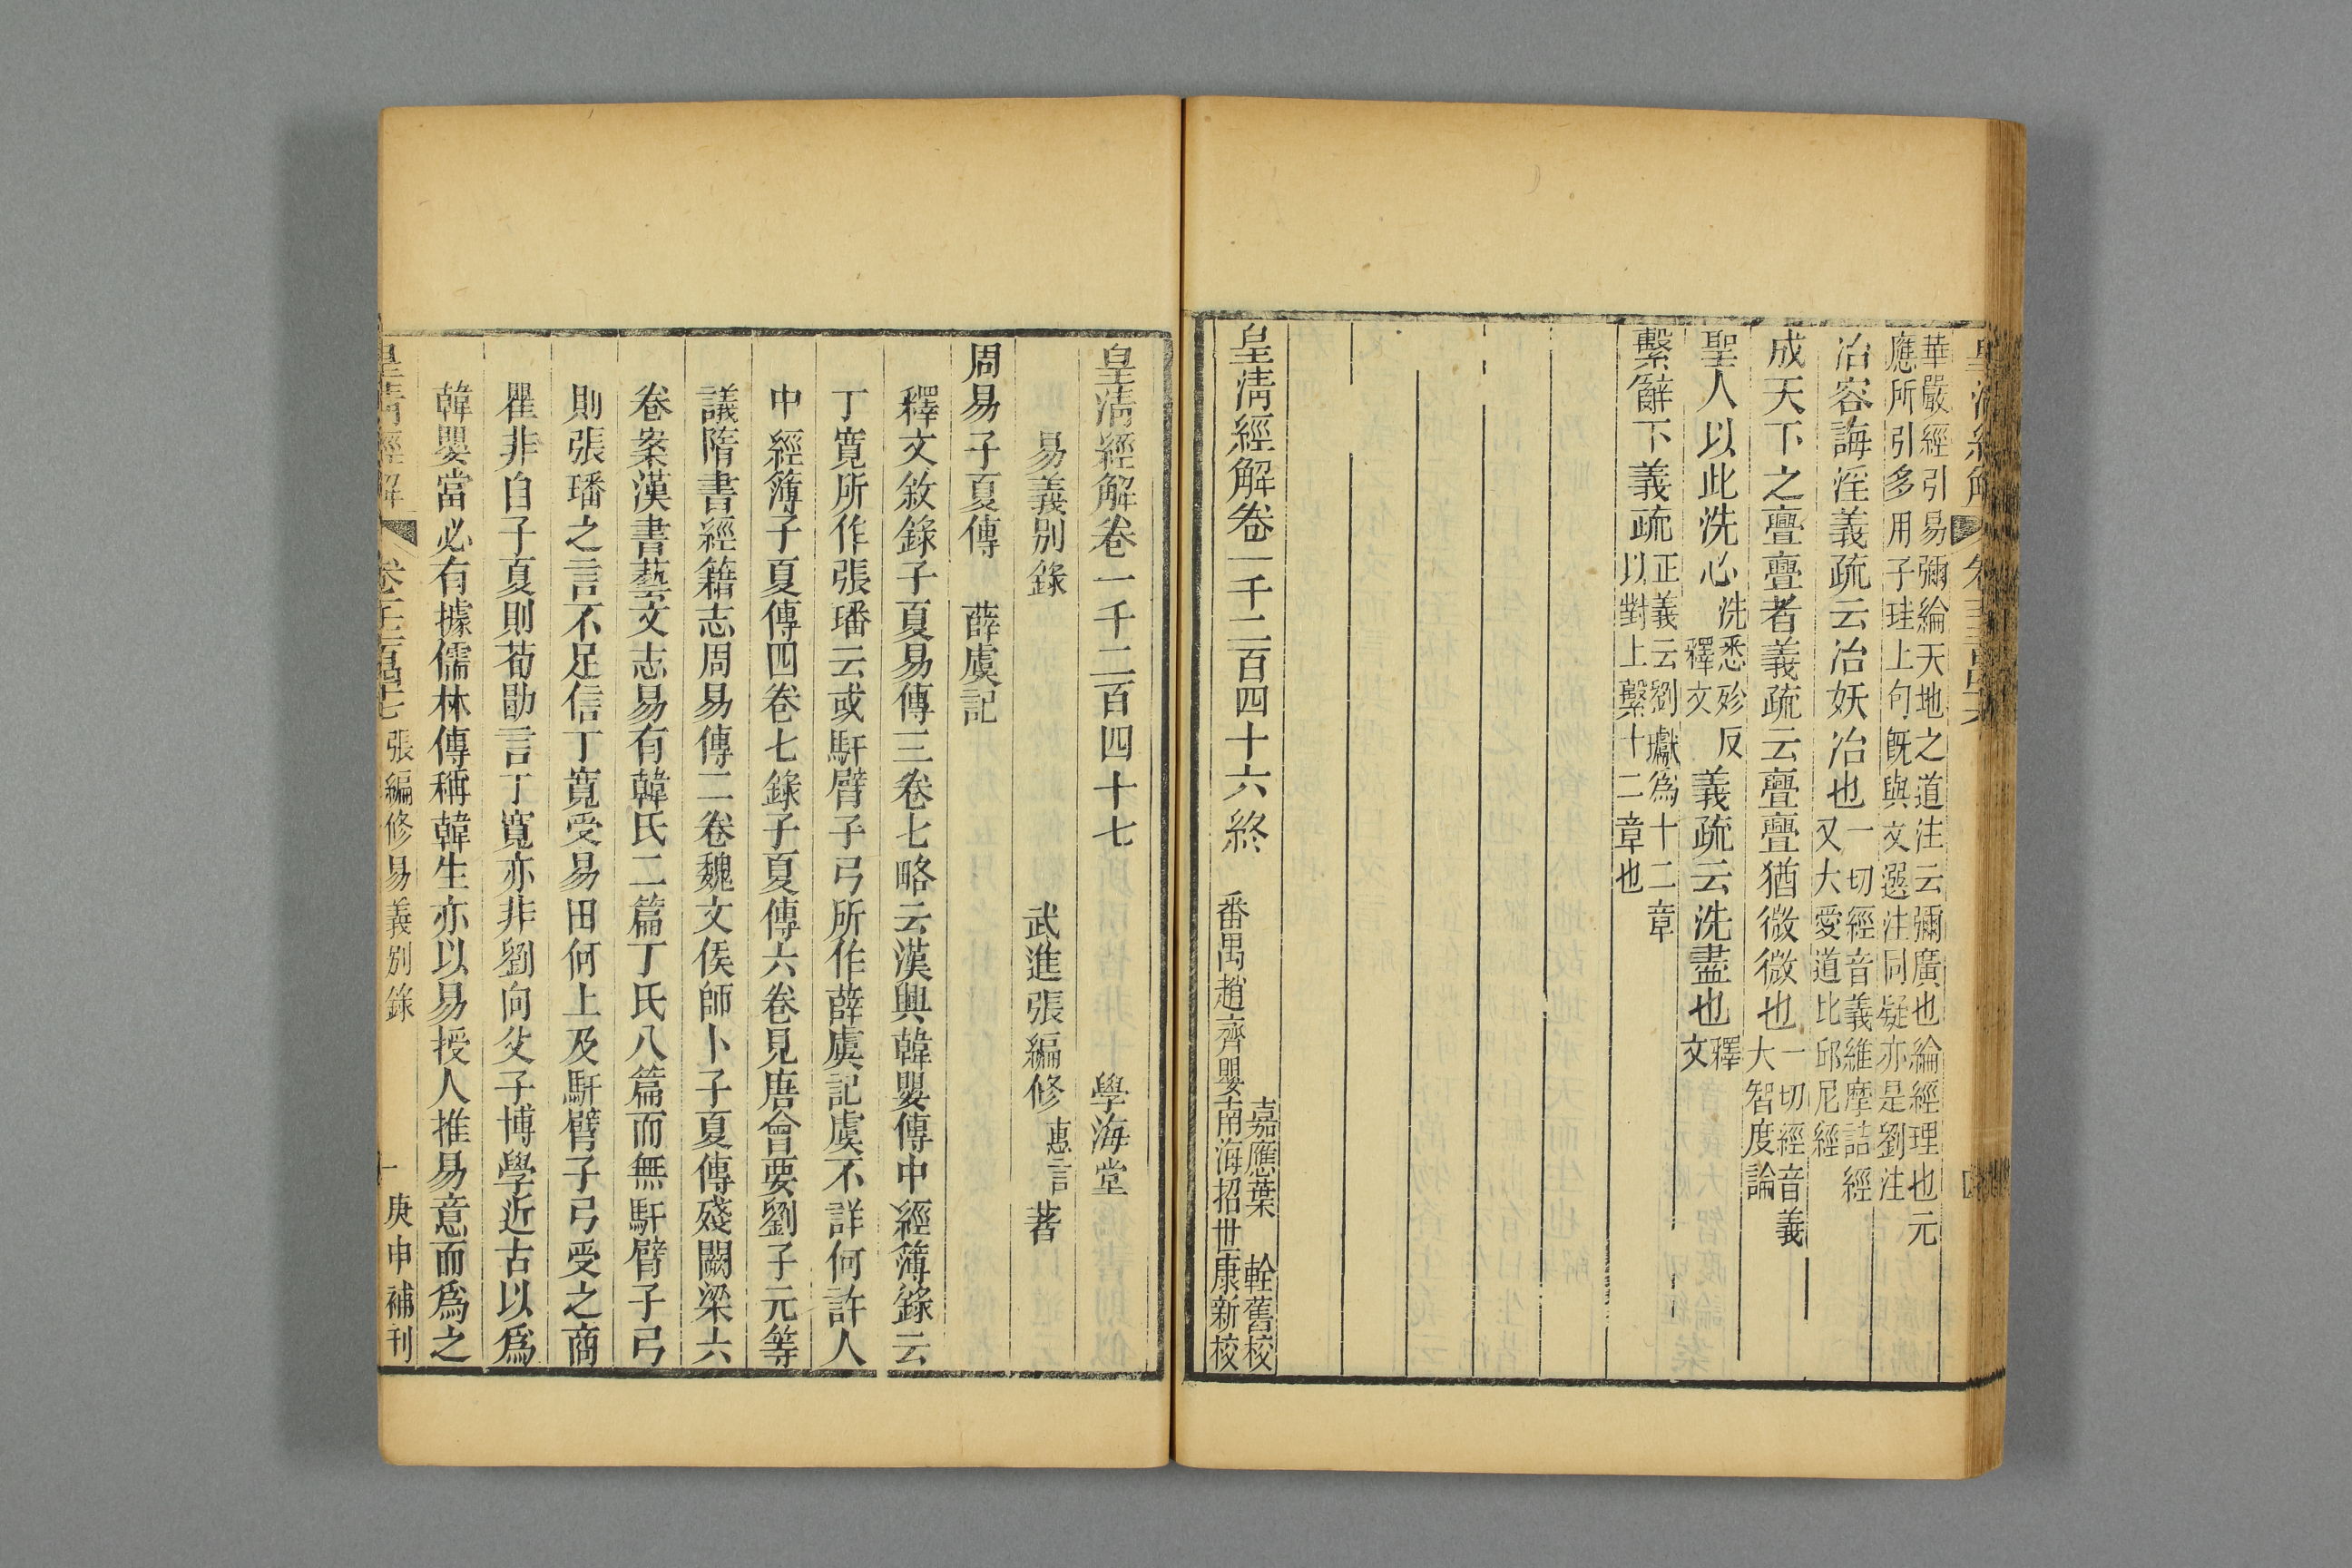 華嚴經引易彌綸天地之道注云彌廣也綸經理也元
應所引多用子珪上句既與文選注同疑亦是劉注
冶容誨淫義疏云冶妖冶也一切經音義維摩詰經
又大愛道比邱尼經
成天下之亹亹者義疏云亹亹猶微微也一切經音義
大智度論
聖人以此洗心洗悉殄反
釋文
義疏云洗盡也釋
文
繫辭下義疏正義云劉瓛為十二章
以對上繫十二章也
皇清經解卷一千二百四十六終
嘉應葉 輇舊校
番禺趙齊嬰南海招世康新校
皇清經解卷一千二百四十七 學海堂
易義別錄 武進張編修惠言著
周易子夏傳 薛虞記
釋文敘錄子夏易傳三卷七略云漢興韓嬰傳中經簿錄云
丁寬所作張璠云或馯臂子弓所作薛虞記虞不詳何許人
中經簿子夏傳四卷七錄子夏傳六卷見唐會要劉子元等
議隋書經籍志周易傳二卷魏文侯師卜子夏傳殘闕梁六
卷案漢書藝文志易有韓氏二篇丁氏八篇而無馯臂子弓
則張璠之言不足信丁寬受易田何上及馯臂子弓受之商
瞿非自子夏則荀勖言丁寬亦非劉向父子博學近古以為
韓嬰當必有據儒林傳稱韓生亦以易授人推易意而為之
皇清經解 張編修易義別錄 一 庚申補刊